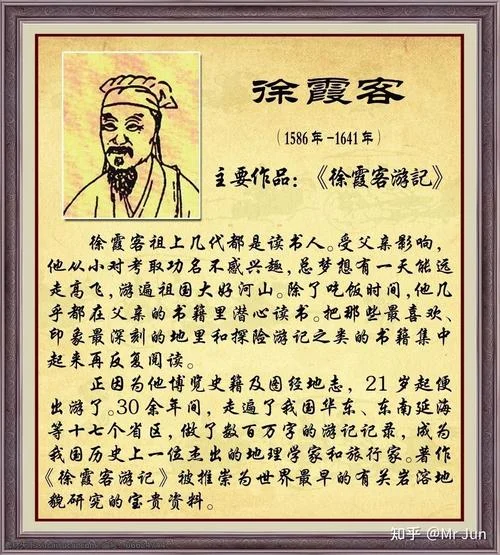 徐霞客
（1586年-1641年）
主要作品：《徐霞客游記》
徐霞客祖上几代都是读书人。受父亲影响，
他从小对考取功名不感兴趣，总梦想有一天能远
走高飞，游遍祖国大好河山。除了吃饭时间，他几
乎都在父亲的书籍里潜心读书。把那些最喜欢、
印象最深刻的地里和探险游记之类的书籍集中
起来再反复阅读。
正因为他博览史籍及图经地志，21岁起便
出游了。30余年间，走遍了我国华东、东南延海
等十七个省区，做了数百万字的游记记录，成为
我国历史上一位杰出的地理学家和旅行家。著作
《徐霞客游记》被推崇为世界最早的有关岩溶地
貌研究的宝贵资料。
知乎 @Mr Jun